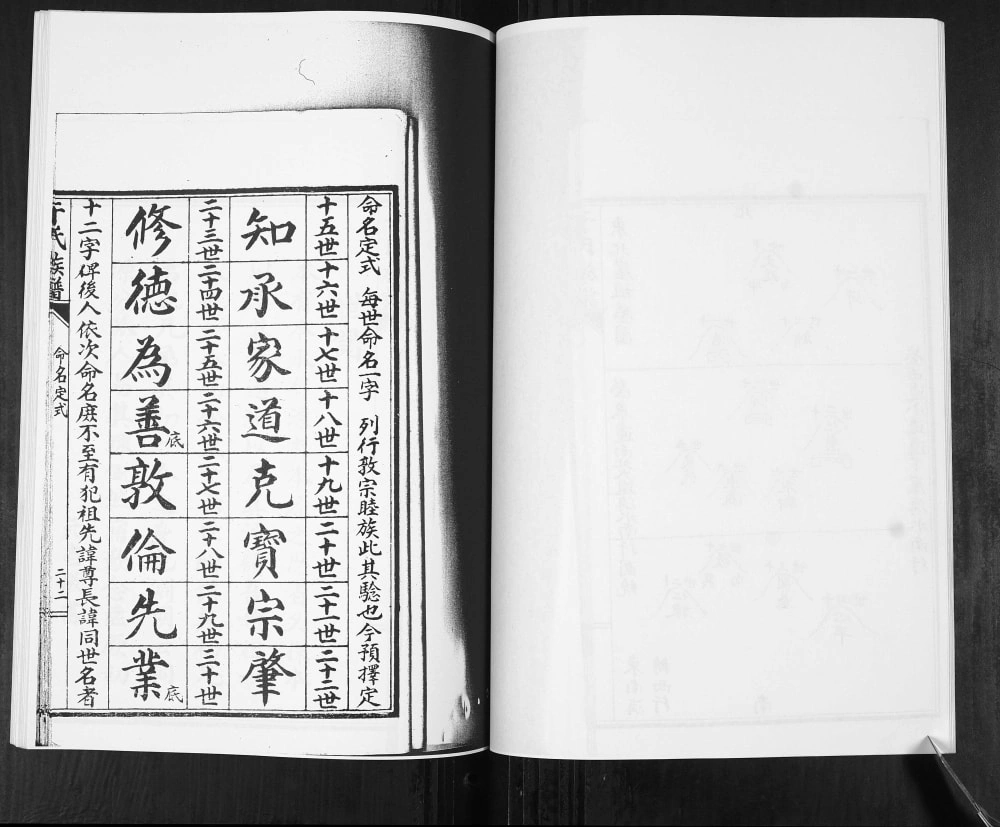 命名定式 每世命名一字 列行敦宗睦族此其驗也今預擇定
十五世 十六世 十七世 十八世 十九世 二十世 二十一世 二十二世
知 承 家 道 克 寶 宗 肇
二十三世 二十四世 二十五世 二十六世 二十七世 二十八世 二十九世 三十世
修 德 為 善底 敦 倫 先 業底
十二字俾後人依次命名庶不至有犯祖先諱尊長諱同世名者
于氏族譜 命名定式 二十二